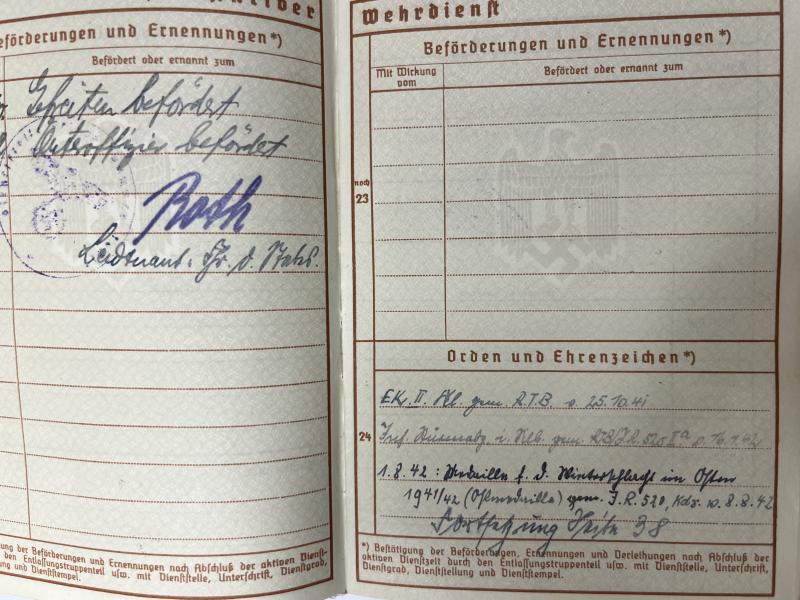 Wehrdienst
Beförderungen und Ernennungen *)
Befördert oder ernannt zum
Gefreiten befördert
Unteroffizier befördert
Roth
Leidtnant. u. d. Stabs.
Beförderungen und Ernennungen *)
Mit Wirkung vom
Befördert oder ernannt zum
noch
23
Orden und Ehrenzeichen *)
EK. II. Kl. gem. R.T.B. v. 25.10.41
24
Inf. Sturmabz. i. Slb. gem. I.R. 520 v. 16.1.42
1.8.42: Medaille f. d. Winterschlacht im Osten
1941/42 (Ostmedaille) gem. I.R. 520, Kdr. v. 8.8.42
Fortsetzung Seite 38
ung der Beförderungen und Ernennungen nach Abschluß der aktiven Dienst-
den Entlassungstruppenteil usw. mit Dienststelle, Unterschrift, Dienstgrad,
ung und Dienststempel.
*) Bestätigung der Beförderungen, Ernennungen und Verleihungen nach Abschluß der
aktiven Dienstzeit durch den Entlassungstruppenteil usw. mit Dienststelle, Unterschrift,
Dienstgrad, Dienststellung und Dienststempel.